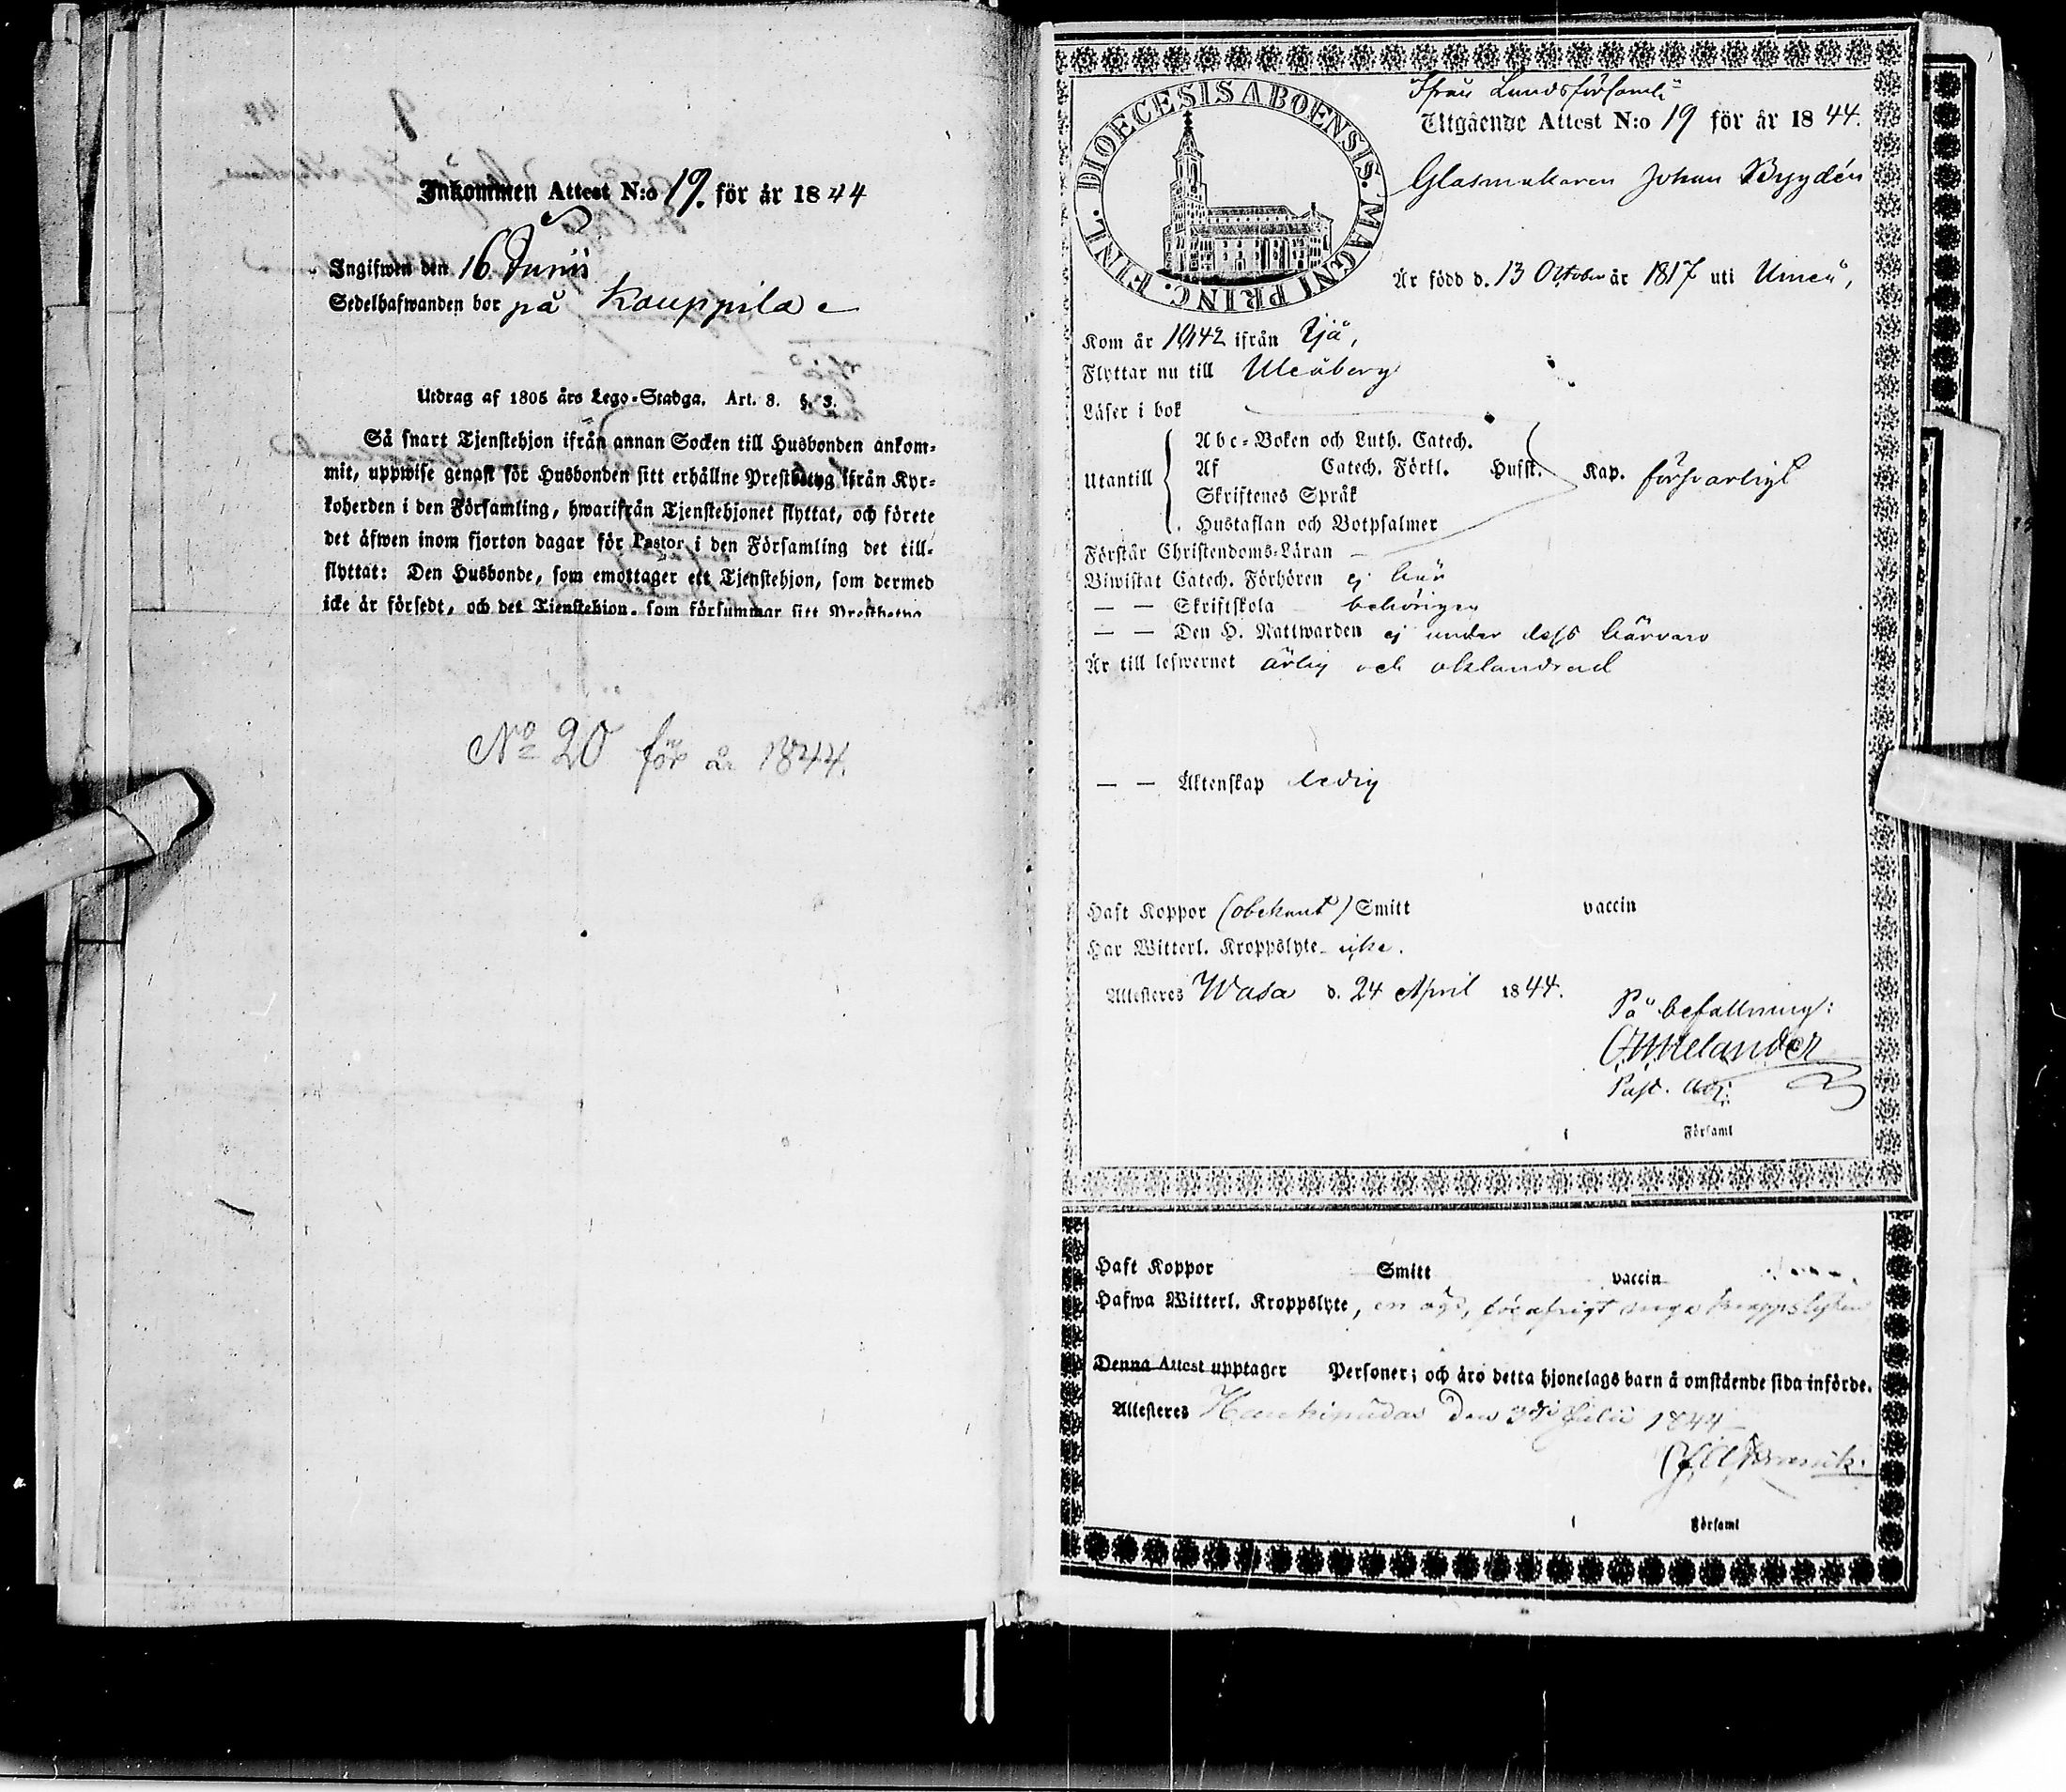 Inkommen Attest N:o 19. för år 1844
Ingifwen den 16 Junii
Sedelhafwanden bor på Kauppila
Utdrag af 1805 års Lego-Stadga. Art. 8. §. 3.
Så snart Tjenstehjon ifrån annan Socken till Husbonden ankom-
mit, uppwise genast för Husbonden sitt erhållne Prestbetyg ifrån Kyr-
koherden i den Församling, hwarifrån Tjenstehjonet flyttat, och förete
det äfwen inom fjorton dagar för Pastor i den Församling det till-
flyttat: Den Husbonde, som emottager ett Tjenstehjon, som dermed
icke är försedt, och det Tjenstehjon, som försummar sitt Prestbetyg
No 20 för år 1844.
DIOECESIS ABOENSIS. MAGNI PRINC. FINL.
Ifrån Landsförsaml:
Utgående Attest N:o 19 för år 1844.
Glasmakaren Johan Brydén
Är född d. 13 October år 1817 uti Umeå,
Kom år 1842 ifrån
Flyttar nu till Uleåborg
Läser i bok
Abc-Boken och Luth. Catech.
Utantill Af Catech. Förkl. Husst. Kap. försvarligt
Skriftenes Språk
Hustaflan och Botpsalmer
Förstår Christendoms-Läran
Biwistat Catech. Förhören ej här
— — Skriftskola behörigen
— — Den H. Nattwarden ej under dess härvaro
Är till lefwernet ärlig och oklandrad
— — Äktenskap ledig
Haft Koppor (obekant) Smitt vaccin
Har Witterl. Kroppslyte icke.
Attesteres Wasa d. 24 April 1844.
På befallning:
Melander
Past. adj:
i Församl
Haft Koppor Smitt vaccin
Hafwa Witterl. Kroppslyte, en
Denna Attest upptager Personer; och äro detta hjonelags barn å omstående sida införde.
Attesteres Haukipudas den 3dje Julii 1844
i Församl